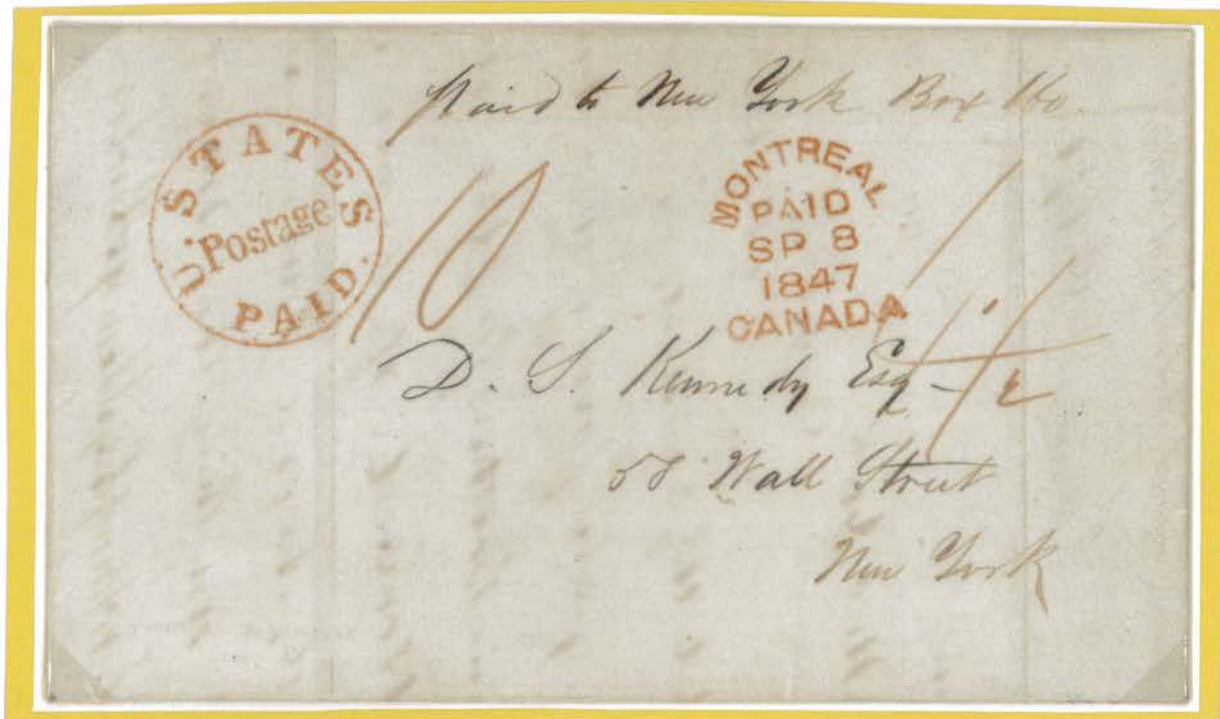 Paid to New York Box 160.
U. STATES
Postage
PAID.
10
MONTREAL
PAID
SP 8
1847
CANADA
D. S. Kennedy Esq
58 Wall Street
New York